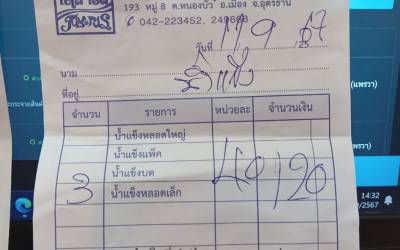 193 หมู่ 8 ต.หนองบัว อ.เมือง จ.อุดรธานี
✆ 042-223452, 249668
วันที่ 11 9 67
นาม น้ำแข็ง
ที่อยู่
จำนวน รายการ หน่วยละ จำนวนเงิน
น้ำแข็งหลอดใหญ่
น้ำแข็งแพ็ค
น้ำแข็งบด
3 น้ำแข็งหลอดเล็ก 40 120
14:32
/2567
(แพรวา)
(แพรวา)